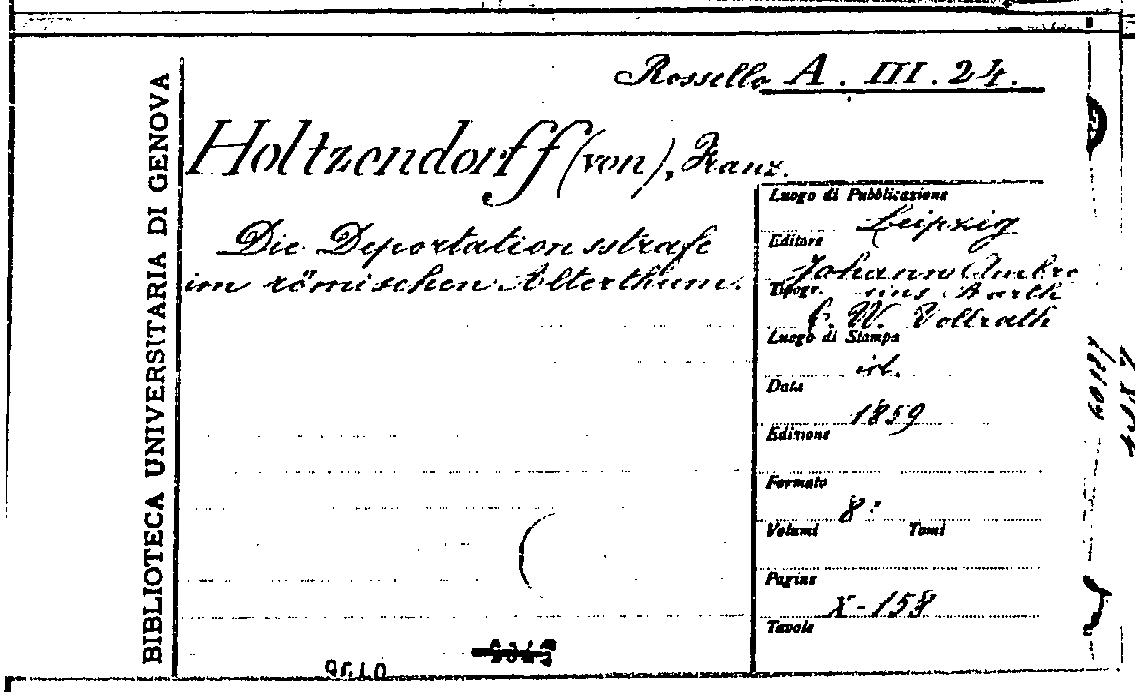 Rossello A. III. 24.
BIBLIOTECA UNIVERSITARIA DI GENOVA
Holtzendorff (von), Franz.
Die Deportationsstrafe
im römischen Alterthum.
Luogo di Pubblicazione
Leipzig
Editore
Johann Ambro
Tipogr. sius Barth
C. W. Vollrath
Luogo di Stampa
ivi.
Data
1859
Edizione
Formato
8°
Volumi Tomi
Pagine
X-158
Tavole